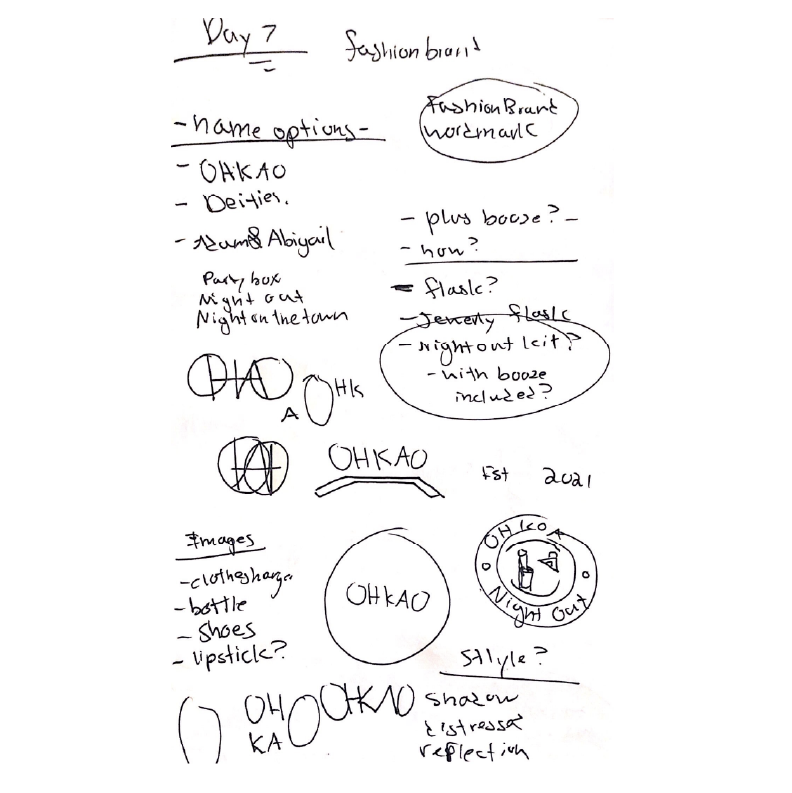 Day 7
fashion brand
Fashion Brand
wordmark
-name options-
- OHKAO
- Deities.
- & Abigail
Party box
Night out
Night on the town
- plus booze? -
- how?
- flask?
- Jewerly flask
- night out kit?
- with booze
included?
OHKAO
A OHK
OHKAO
Est 2021
Images
- clotheshange
- bottle
- shoes
- lipstick?
OHKAO
OHKOA
Night Out
Stlyle?
shadow
distressed
reflection
OH
KA
O
OHKAO